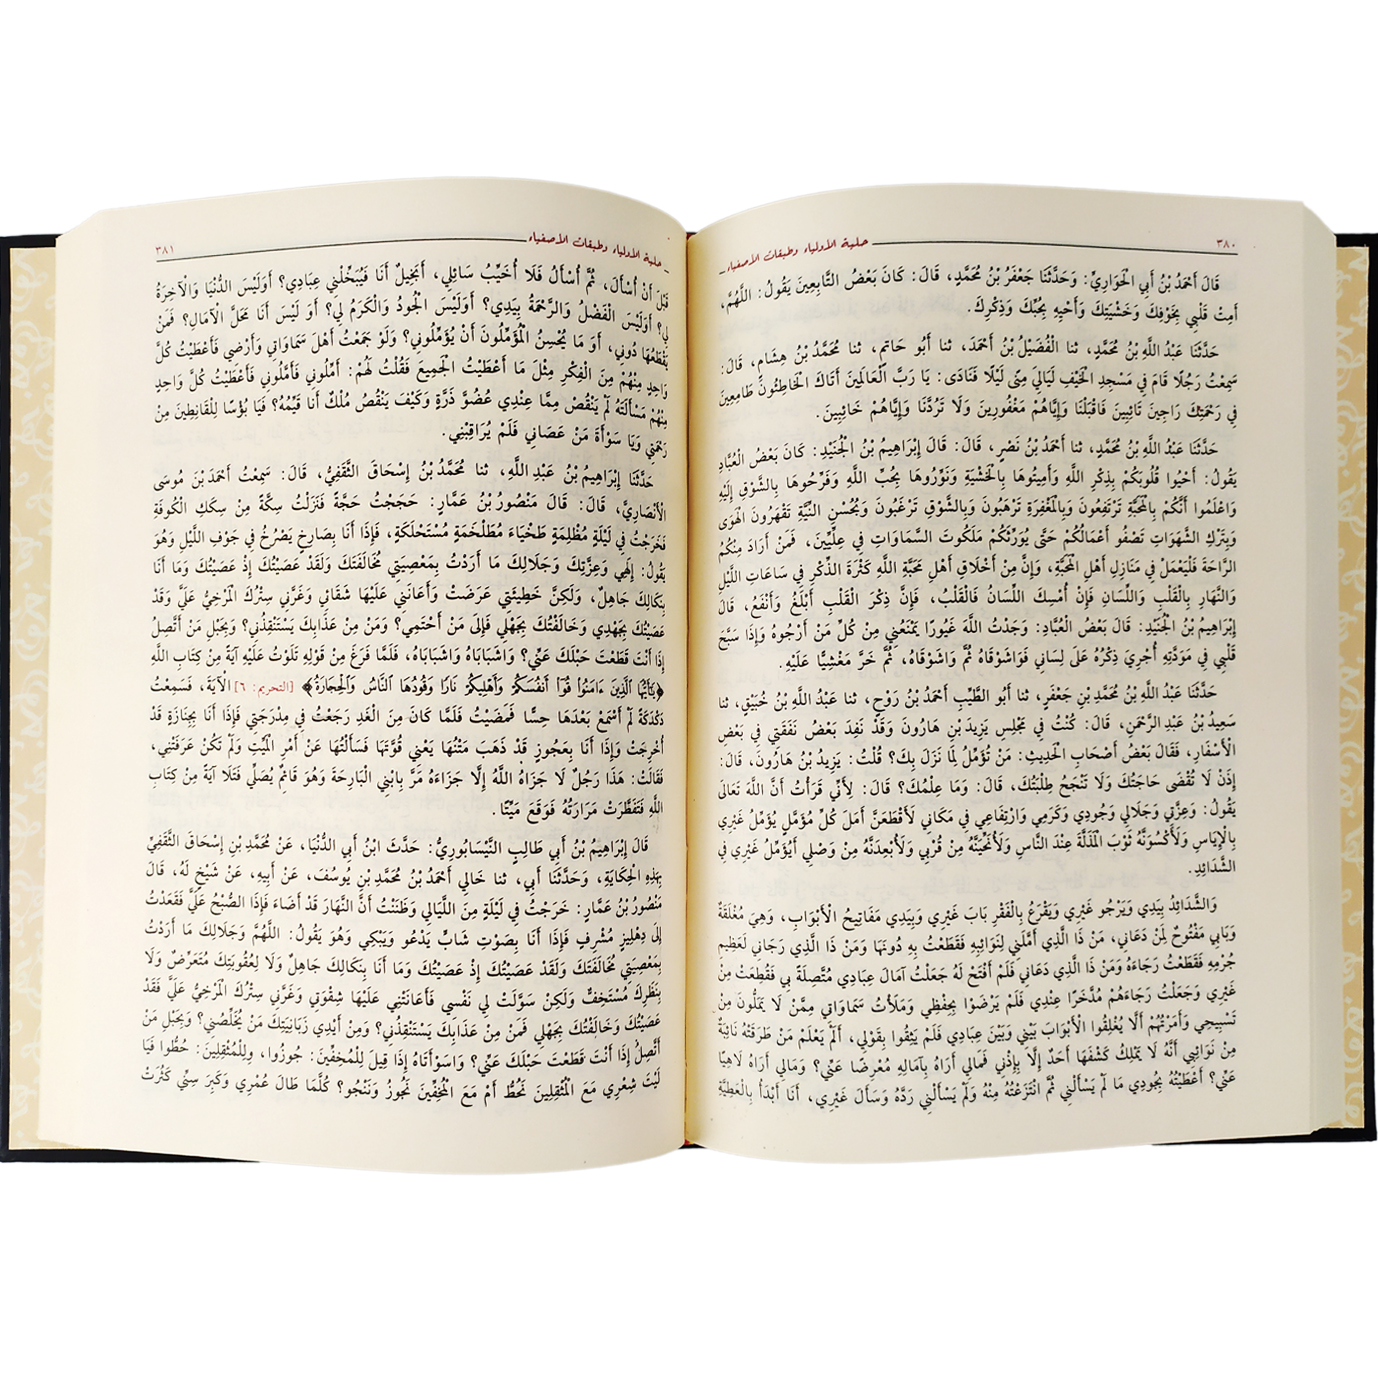 ٣٨٠
حلية الأولياء وطبقات الأصفياء
قَالَ أَحْمَدُ بْنُ أَبِي الْحَوَارِيِّ: وَحَدَّثَنَا جَعْفَرُ بْنُ مُحَمَّدٍ، قَالَ: كَانَ بَعْضُ التَّابِعِينَ يَقُولُ: اللَّهُمَّ،
أَمِتْ قَلْبِي بِخَوْفِكَ وَخَشْيَتِكَ وَأَحْيِهِ بِحُبِّكَ وَذِكْرِكَ.
حَدَّثَنَا عَبْدُ اللَّهِ بْنُ مُحَمَّدٍ، ثنا الْفُضَيْلُ بْنُ أَحْمَدَ، ثنا أَبُو حَاتِمٍ، ثنا مُحَمَّدُ بْنُ هِشَامٍ، قَالَ:
سَمِعْتُ رَجُلًا قَامَ فِي مَسْجِدِ الْخَيْفِ لَيَالِيَ مِنًى لَيْلًا فَنَادَى: يَا رَبَّ الْعَالَمِينَ أَتَاكَ الْخَاطِئُونَ طَامِعِينَ
فِي رَحْمَتِكَ رَاجِينَ تَائِبِينَ فَاقْبَلْنَا وَإِيَّاهُمْ مَغْفُورِينَ وَلَا تَرُدَّنَا وَإِيَّاهُمْ خَائِبِينَ.
حَدَّثَنَا عَبْدُ اللَّهِ بْنُ مُحَمَّدٍ، ثنا أَحْمَدُ بْنُ نَصْرٍ، قَالَ: قَالَ إِبْرَاهِيمُ بْنُ الْجُنَيْدِ: كَانَ بَعْضُ الْعُبَّادِ
يَقُولُ: أَحْيُوا قُلُوبَكُمْ بِذِكْرِ اللَّهِ وَأَمِيتُوهَا بِالْخَشْيَةِ وَنَوِّرُوهَا بِحُبِّ اللَّهِ وَفَرِّحُوهَا بِالشَّوْقِ إِلَيْهِ
وَاعْلَمُوا أَنَّكُمْ بِالْمَحَبَّةِ تَرْتَفِعُونَ وَبِالْمَغْفِرَةِ تَرْهَبُونَ وَبِالشَّوْقِ تَرْغَبُونَ وَبِحُسْنِ النِّيَّةِ تَقْهَرُونَ الْهَوَى
وَبِتَرْكِ الشَّهَوَاتِ تَصْفُو أَعْمَالُكُمْ حَتَّى يُوَرِّثَكُمْ مَلَكُوتَ السَّمَاوَاتِ فِي عِلِّيِّينَ، فَمَنْ أَرَادَ مِنْكُمُ
الرَّاحَةَ فَلْيَعْمَلْ فِي مَنَازِلِ أَهْلِ الْمَحَبَّةِ، وَإِنَّ مِنْ أَخْلَاقِ أَهْلِ مَحَبَّةِ اللَّهِ كَثْرَةَ الذِّكْرِ فِي سَاعَاتِ اللَّيْلِ
وَالنَّهَارِ بِالْقَلْبِ وَاللِّسَانِ فَإِنْ أُمْسِكَ اللِّسَانُ فَالْقَلْبُ، فَإِنَّ ذِكْرَ الْقَلْبِ أَبْلَغُ وَأَنْفَعُ، قَالَ
إِبْرَاهِيمُ بْنُ الْجُنَيْدِ: قَالَ بَعْضُ الْعُبَّادِ: وَجَدْتُ اللَّهَ غَيُورًا يَمْنَعُنِي مِنْ كُلِّ مَنْ أَرْجُوهُ وَإِذَا سَبَّحَ
قَلْبِي فِي مَوَدَّتِهِ أُجْرِيَ ذِكْرُهُ عَلَى لِسَانِي فَوَاشَوْقَاهُ ثُمَّ وَاشَوْقَاهُ، ثُمَّ خَرَّ مَغْشِيًّا عَلَيْهِ.
حَدَّثَنَا عَبْدُ اللَّهِ بْنُ مُحَمَّدِ بْنِ جَعْفَرٍ، ثنا أَبُو الطَّيِّبِ أَحْمَدُ بْنُ رَوْحٍ، ثنا عَبْدُ اللَّهِ بْنُ خُبَيْقٍ، ثنا
سَعِيدُ بْنُ عَبْدِ الرَّحْمَنِ، قَالَ: كُنْتُ فِي مَجْلِسِ يَزِيدَ بْنِ هَارُونَ وَقَدْ نَفِدَ بَعْضُ نَفَقَتِي فِي بَعْضِ
الْأَسْفَارِ، فَقَالَ بَعْضُ أَصْحَابِ الْحَدِيثِ: مَنْ تُؤَمِّلُ لِمَا نَزَلَ بِكَ؟ قُلْتُ: يَزِيدُ بْنُ هَارُونَ، قَالَ:
إِذَنْ لَا تُقْضَى حَاجَتُكَ وَلَا تَنْجَحُ طِلْبَتُكَ، قَالَ: وَمَا عِلْمُكَ؟ قَالَ: لِأَنِّي قَرَأْتُ أَنَّ اللَّهَ تَعَالَى
يَقُولُ: وَعِزَّتِي وَجَلَالِي وَجُودِي وَكَرَمِي وَارْتِفَاعِي فِي مَكَانِي لَأَقْطَعَنَّ أَمَلَ كُلِّ مُؤَمِّلٍ يُؤَمِّلُ غَيْرِي
بِالْإِيَاسِ وَلَأَكْسُوَنَّهُ ثَوْبَ الْمَذَلَّةِ عِنْدَ النَّاسِ وَلَأُنَحِّيَنَّهُ مِنْ قُرْبِي وَلَأُبْعِدَنَّهُ مِنْ وَصْلِي أَيُؤَمِّلُ غَيْرِي فِي
الشَّدَائِدِ.
وَالشَّدَائِدُ بِيَدِي وَيَرْجُو غَيْرِي وَيَقْرَعُ بِالْفَقْرِ بَابَ غَيْرِي وَبِيَدِي مَفَاتِيحُ الْأَبْوَابِ، وَهِيَ مُغْلَقَةٌ
وَبَابِي مَفْتُوحٌ لِمَنْ دَعَانِي، مَنْ ذَا الَّذِي أَمَّلَنِي لِنَوَائِبِهِ فَقَطَعْتُ بِهِ دُونَهَا وَمَنْ ذَا الَّذِي رَجَانِي لِعَظِيمِ
جُرْمِهِ فَقَطَعْتُ رَجَاءَهُ وَمَنْ ذَا الَّذِي دَعَانِي فَلَمْ أَفْتَحْ لَهُ جَعَلْتُ آمَالَ عِبَادِي مُتَّصِلَةً بِي فَقُطِعَتْ مِنْ
غَيْرِي وَجَعَلْتُ رَجَاءَهُمْ مُدَّخَرًا عِنْدِي فَلَمْ يَرْضَوْا بِحِفْظِي وَمَلَأْتُ سَمَاوَاتِي مِمَّنْ لَا يَمَلُّونَ مِنْ
تَسْبِيحِي وَأَمَرْتُهُمْ أَلَّا يُغْلِقُوا الْأَبْوَابَ بَيْنِي وَبَيْنَ عِبَادِي فَلَمْ يَثِقُوا بِقَوْلِي، أَلَمْ يَعْلَمْ مَنْ طَرَقَتْهُ نَائِبَةٌ
مِنْ نَوَائِبِي أَنَّهُ لَا يَمْلِكُ كَشْفَهَا أَحَدٌ إِلَّا بِإِذْنِي فَمَالِي أَرَاهُ بِآمَالِهِ مُعْرِضًا عَنِّي؟ وَمَالِي أَرَاهُ لَاهِيًا
عَنِّي؟ أَعْطَيْتُهُ بِجُودِي مَا لَمْ يَسْأَلْنِي ثُمَّ انْتَزَعْتُهُ مِنْهُ وَلَمْ يَسْأَلْنِي رَدَّهُ وَسَأَلَ غَيْرِي، أَنَا أَبْدَأُ بِالْعَطِيَّةِ
حلية الأولياء وطبقات الأصفياء
٣٨١
قَبْلَ أَنْ أُسْأَلَ، ثُمَّ أُسْأَلُ فَلَا أُخَيِّبُ سَائِلِي، أَبَخِيلٌ أَنَا فَيُبَخِّلُنِي عِبَادِي؟ أَوَلَيْسَ الدُّنْيَا وَالْآخِرَةُ
لِي؟ أَوَلَيْسَ الْفَضْلُ وَالرَّحْمَةُ بِيَدِي؟ أَوَلَيْسَ الْجُودُ وَالْكَرَمُ لِي؟ أَوَ لَيْسَ أَنَا مَحَلَّ الْآمَالِ؟ فَمَنْ
يَقْطَعُهَا دُونِي، أَوَ مَا يُحْسِنُ الْمُؤَمِّلُونَ أَنْ يُؤَمِّلُونِي؟ وَلَوْ جَمَعْتُ أَهْلَ سَمَاوَاتِي وَأَرْضِي فَأَعْطَيْتُ كُلَّ
وَاحِدٍ مِنْهُمْ مِنَ الْفِكْرِ مِثْلَ مَا أَعْطَيْتُ الْجَمِيعَ فَقُلْتُ لَهُمْ: أَمِّلُونِي فَأَمَّلُونِي فَأَعْطَيْتُ كُلَّ وَاحِدٍ
مِنْهُمْ مَسْأَلَتَهُ لَمْ يَنْقُصْ مِمَّا عِنْدِي عُضْوُ ذَرَّةٍ وَكَيْفَ يَنْقُصُ مُلْكٌ أَنَا قَيِّمُهُ؟ فَيَا بُؤْسًا لِلْقَانِطِينَ مِنْ
رَحْمَتِي وَيَا سَوْأَةَ مَنْ عَصَانِي فَلَمْ يُرَاقِبْنِي.
حَدَّثَنَا إِبْرَاهِيمُ بْنُ عَبْدِ اللَّهِ، ثنا مُحَمَّدُ بْنُ إِسْحَاقَ الثَّقَفِيُّ، قَالَ: سَمِعْتُ أَحْمَدَ بْنَ مُوسَى
الْأَنْصَارِيَّ، قَالَ: قَالَ مَنْصُورُ بْنُ عَمَّارٍ: حَجَجْتُ حَجَّةً فَنَزَلْتُ سِكَّةً مِنْ سِكَكِ الْكُوفَةِ
فَخَرَجْتُ فِي لَيْلَةٍ مُظْلِمَةٍ طَخْيَاءَ مُطْلَخِمَةٍ مُسْتَحْلِكَةٍ، فَإِذَا أَنَا بِصَارِخٍ يَصْرُخُ فِي جَوْفِ اللَّيْلِ وَهُوَ
يَقُولُ: إِلَهِي وَعِزَّتِكَ وَجَلَالِكَ مَا أَرَدْتُ بِمَعْصِيَتِي مُخَالَفَتَكَ وَلَقَدْ عَصَيْتُكَ إِذْ عَصَيْتُكَ وَمَا أَنَا
بِنَكَالِكَ جَاهِلٌ، وَلَكِنَّ خَطِيئَتِي عَرَضَتْ وَأَعَانَنِي عَلَيْهَا شَقَائِي وَغَرَّنِي سِتْرُكَ الْمَرْخِيُّ عَلَيَّ وَقَدْ
عَصَيْتُكَ بِجَهْدِي وَخَالَفْتُكَ بِجَهْلِي فَإِلَى مَنْ أَحْتَمِي؟ وَمَنْ مِنْ عَذَابِكَ يَسْتَنْقِذُنِي؟ وَبِحَبْلِ مَنْ أَتَّصِلُ
إِذَا أَنْتَ قَطَعْتَ حَبْلَكَ عَنِّي؟ وَاشَبَابَاهُ وَاشَبَابَاهُ، فَلَمَّا فَرَغَ مِنْ قَوْلِهِ تَلَوْتُ عَلَيْهِ آيَةً مِنْ كِتَابِ اللَّهِ
﴿يَٰٓأَيُّهَا ٱلَّذِينَ ءَامَنُوا۟ قُوٓا۟ أَنفُسَكُمْ وَأَهْلِيكُمْ نَارًا وَقُودُهَا ٱلنَّاسُ وَٱلْحِجَارَةُ﴾ [التحريم: ٦] الْآيَةَ، فَسَمِعْتُ
دَكْدَكَةً لَمْ أَسْمَعْ بَعْدَهَا حِسًّا فَمَضَيْتُ فَلَمَّا كَانَ مِنَ الْغَدِ رَجَعْتُ فِي مَدْرَجَتِي فَإِذَا أَنَا بِجِنَازَةٍ قَدْ
أُخْرِجَتْ وَإِذَا أَنَا بِعَجُوزٍ قَدْ ذَهَبَ مَتْنُهَا يَعْنِي قُوَّتَهَا فَسَأَلْتُهَا عَنْ أَمْرِ الْمَيِّتِ وَلَمْ تَكُنْ عَرَفَتْنِي،
فَقَالَتْ: هَذَا رَجُلٌ لَا جَزَاهُ اللَّهُ إِلَّا جَزَاءَهُ مَرَّ بِابْنِي الْبَارِحَةَ وَهُوَ قَائِمٌ يُصَلِّي فَتَلَا آيَةً مِنْ كِتَابِ
اللَّهِ فَتَفَطَّرَتْ مَرَارَتُهُ فَوَقَعَ مَيْتًا.
قَالَ إِبْرَاهِيمُ بْنُ أَبِي طَالِبٍ النَّيْسَابُورِيُّ: حَدَّثَ ابْنُ أَبِي الدُّنْيَا، عَنْ مُحَمَّدِ بْنِ إِسْحَاقَ الثَّقَفِيِّ
بِهَذِهِ الْحِكَايَةِ، وَحَدَّثَنَا أَبِي، ثنا خَالِي أَحْمَدُ بْنُ مُحَمَّدِ بْنِ يُوسُفَ، عَنْ أَبِيهِ، عَنْ شَيْخٍ لَهُ، قَالَ
مَنْصُورُ بْنُ عَمَّارٍ: خَرَجْتُ فِي لَيْلَةٍ مِنَ اللَّيَالِي وَظَنَنْتُ أَنَّ النَّهَارَ قَدْ أَضَاءَ فَإِذَا الصُّبْحُ عَلَيَّ فَقَعَدْتُ
إِلَى دِهْلِيزٍ مُشْرِفٍ فَإِذَا أَنَا بِصَوْتِ شَابٍّ يَدْعُو وَيَبْكِي وَهُوَ يَقُولُ: اللَّهُمَّ وَجَلَالِكَ مَا أَرَدْتُ
بِمَعْصِيَتِي مُخَالَفَتَكَ وَلَقَدْ عَصَيْتُكَ إِذْ عَصَيْتُكَ وَمَا أَنَا بِنَكَالِكَ جَاهِلٌ وَلَا لِعُقُوبَتِكَ مُتَعَرِّضٌ وَلَا
بِنَظَرِكَ مُسْتَخِفٌّ وَلَكِنْ سَوَّلَتْ لِي نَفْسِي فَأَعَانَتْنِي عَلَيْهَا شِقْوَتِي وَغَرَّنِي سِتْرُكَ الْمَرْخِيُّ عَلَيَّ فَقَدْ
عَصَيْتُكَ وَخَالَفْتُكَ بِجَهْلِي فَمَنْ مِنْ عَذَابِكَ يَسْتَنْقِذُنِي؟ وَمِنْ أَيْدِي زَبَانِيَتِكَ مَنْ يُخَلِّصُنِي؟ وَبِحَبْلِ مَنْ
أَتَّصِلُ إِذَا أَنْتَ قَطَعْتَ حَبْلَكَ عَنِّي؟ وَاسَوْأَتَاهُ إِذَا قِيلَ لِلْمُخِفِّينَ: جُوزُوا، وَلِلْمُثْقِلِينَ: حُطُّوا فَيَا
لَيْتَ شِعْرِي مَعَ الْمُثْقِلِينَ نَحُطُّ أَمْ مَعَ الْمُخِفِّينَ نَجُوزُ وَنَنْجُو؟ كُلَّمَا طَالَ عُمْرِي وَكَبِرَ سِنِّي كَثُرَتْ